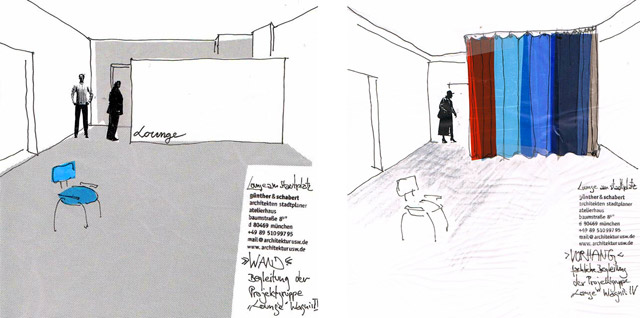 Lounge
Lounge am Stadtplatz
günther & schabert
architekten stadtplaner
atelierhaus
baumstraße 8b
d 80469 münchen
+49 89 51099795
mail@architekturusw.de
www.architekturusw.de
»WAND«
Begleitung der
Projektgruppe
"Lounge" Wagnis
Lounge am Stadtplatz
günther & schabert
architekten stadtplaner
atelierhaus
baumstraße
d 80469 münchen
+49 89 51099795
mail@architekturusw.de
www.architekturusw.de
»VORHANG«
Begleitung
der Projektgruppe
"Lounge" Wagnis IV